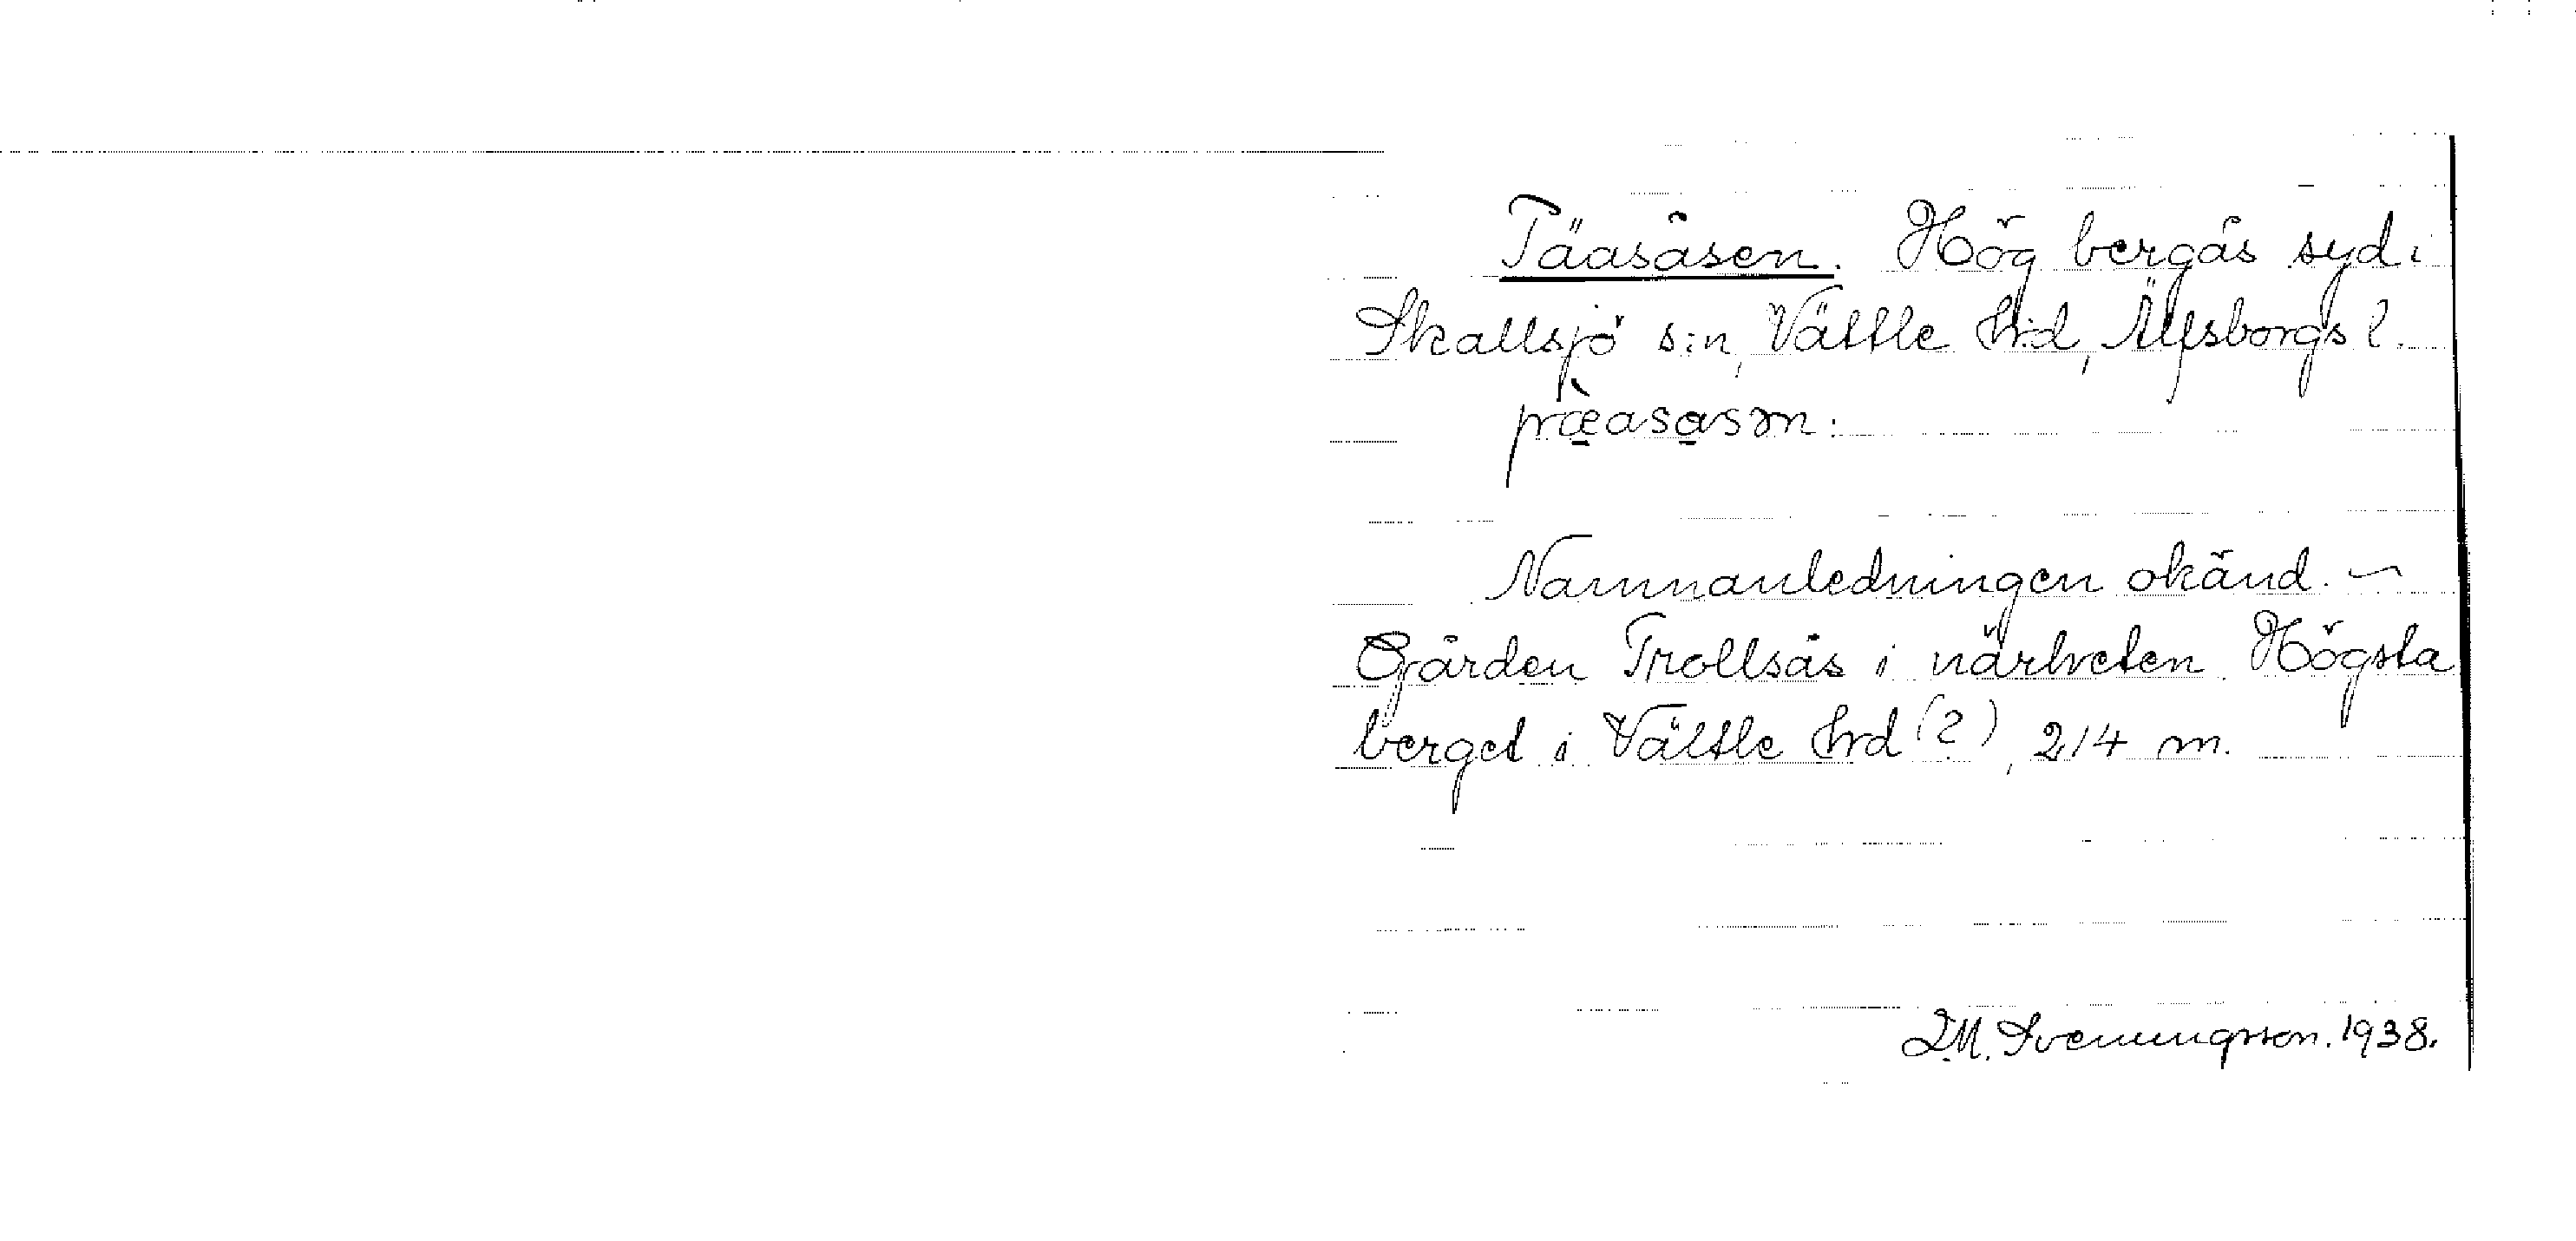 Täasåsen. Hög bergås syd i
Skallsjö s:n, Vättle hrd, Älfsborgs l.
Namnanledningen okänd. —
Gården Trollsås i närheten. Högsta
berget i Vättle hrd (?), 214 m.
D.M. Svenningsson. 1938.